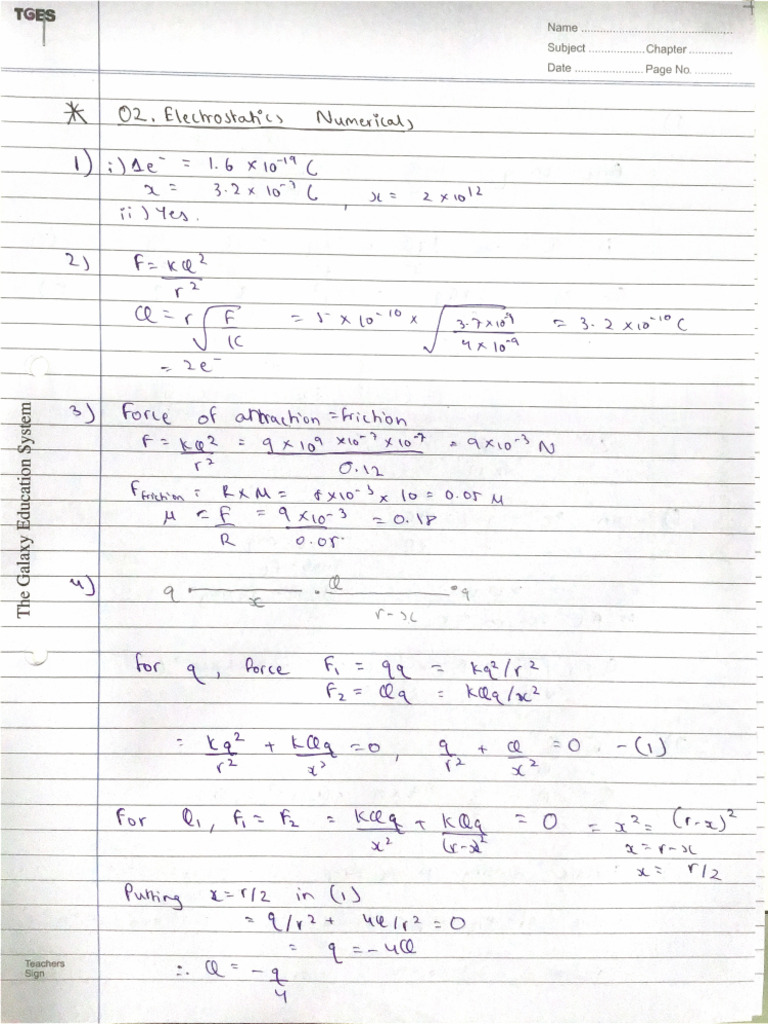 TGES
Name ..............................................
Subject ................. Chapter .............
Date ..................... Page No. ............
* 02. Electrostatics Numericals
1) i) 1e⁻ = 1.6 × 10⁻¹⁹ C
x = 3.2 × 10⁻⁷ C , x = 2 × 10¹²
ii) Yes.
2) F = kQ²/r²
Q = r √(F/K) = 5 × 10⁻¹⁰ × √(3.7×10⁻⁹/4×10⁻⁹) = 3.2 × 10⁻¹⁰ C
= 2e⁻
3) Force of attraction = friction
F = kQ²/r² = 9 × 10⁹ × 10⁻⁷ × 10⁻⁷/0.12 = 9 × 10⁻³ N
F friction = R × M = 5 × 10⁻³ × 10 = 0.05 M
μ = F/R = 9 × 10⁻³/0.05 = 0.18
4) q x Q r-x q
For q, force F₁ = qq = kq²/r²
F₂ = Qq = kQq/x²
= kq²/r² + kQq/x² = 0, q/r² + Q/x² = 0 - (1)
For Q₁, F₁ = F₂ = kQq/x² + kQq/(r-x)² = 0 = x² = (r-x)²
x = r-x
x = r/2
Putting x = r/2 in (1)
= q/r² + 4Q/r² = 0
= q = -4Q
∴ Q = -q/4
The Galaxy Education System
Teachers
Sign